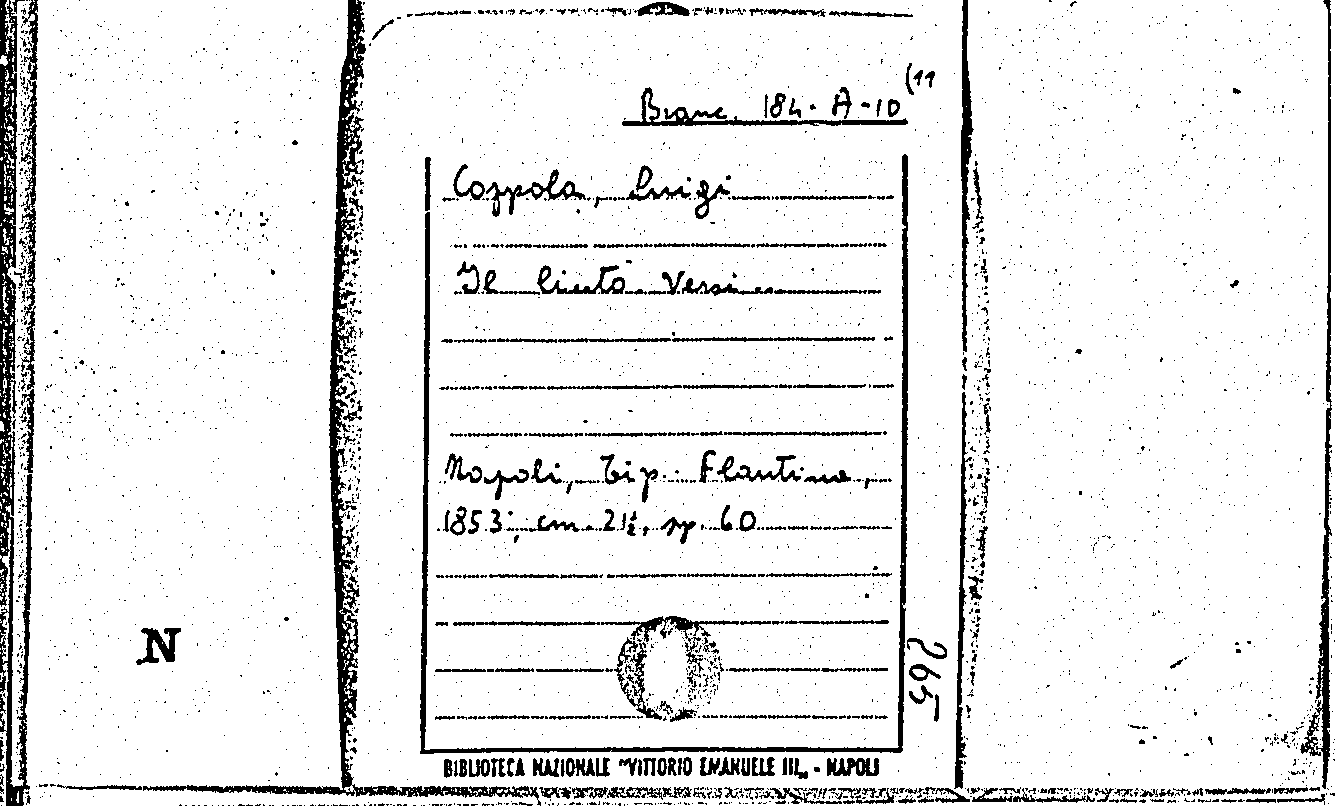 Branc. 184-A-10 (11
Coppola, Luigi
Il liuto. Versi...
Napoli, Tip. Flautina,
1853; cm. 21½, pp. 60
265
N
BIBLIOTECA NAZIONALE "VITTORIO EMANUELE III„ - NAPOLI